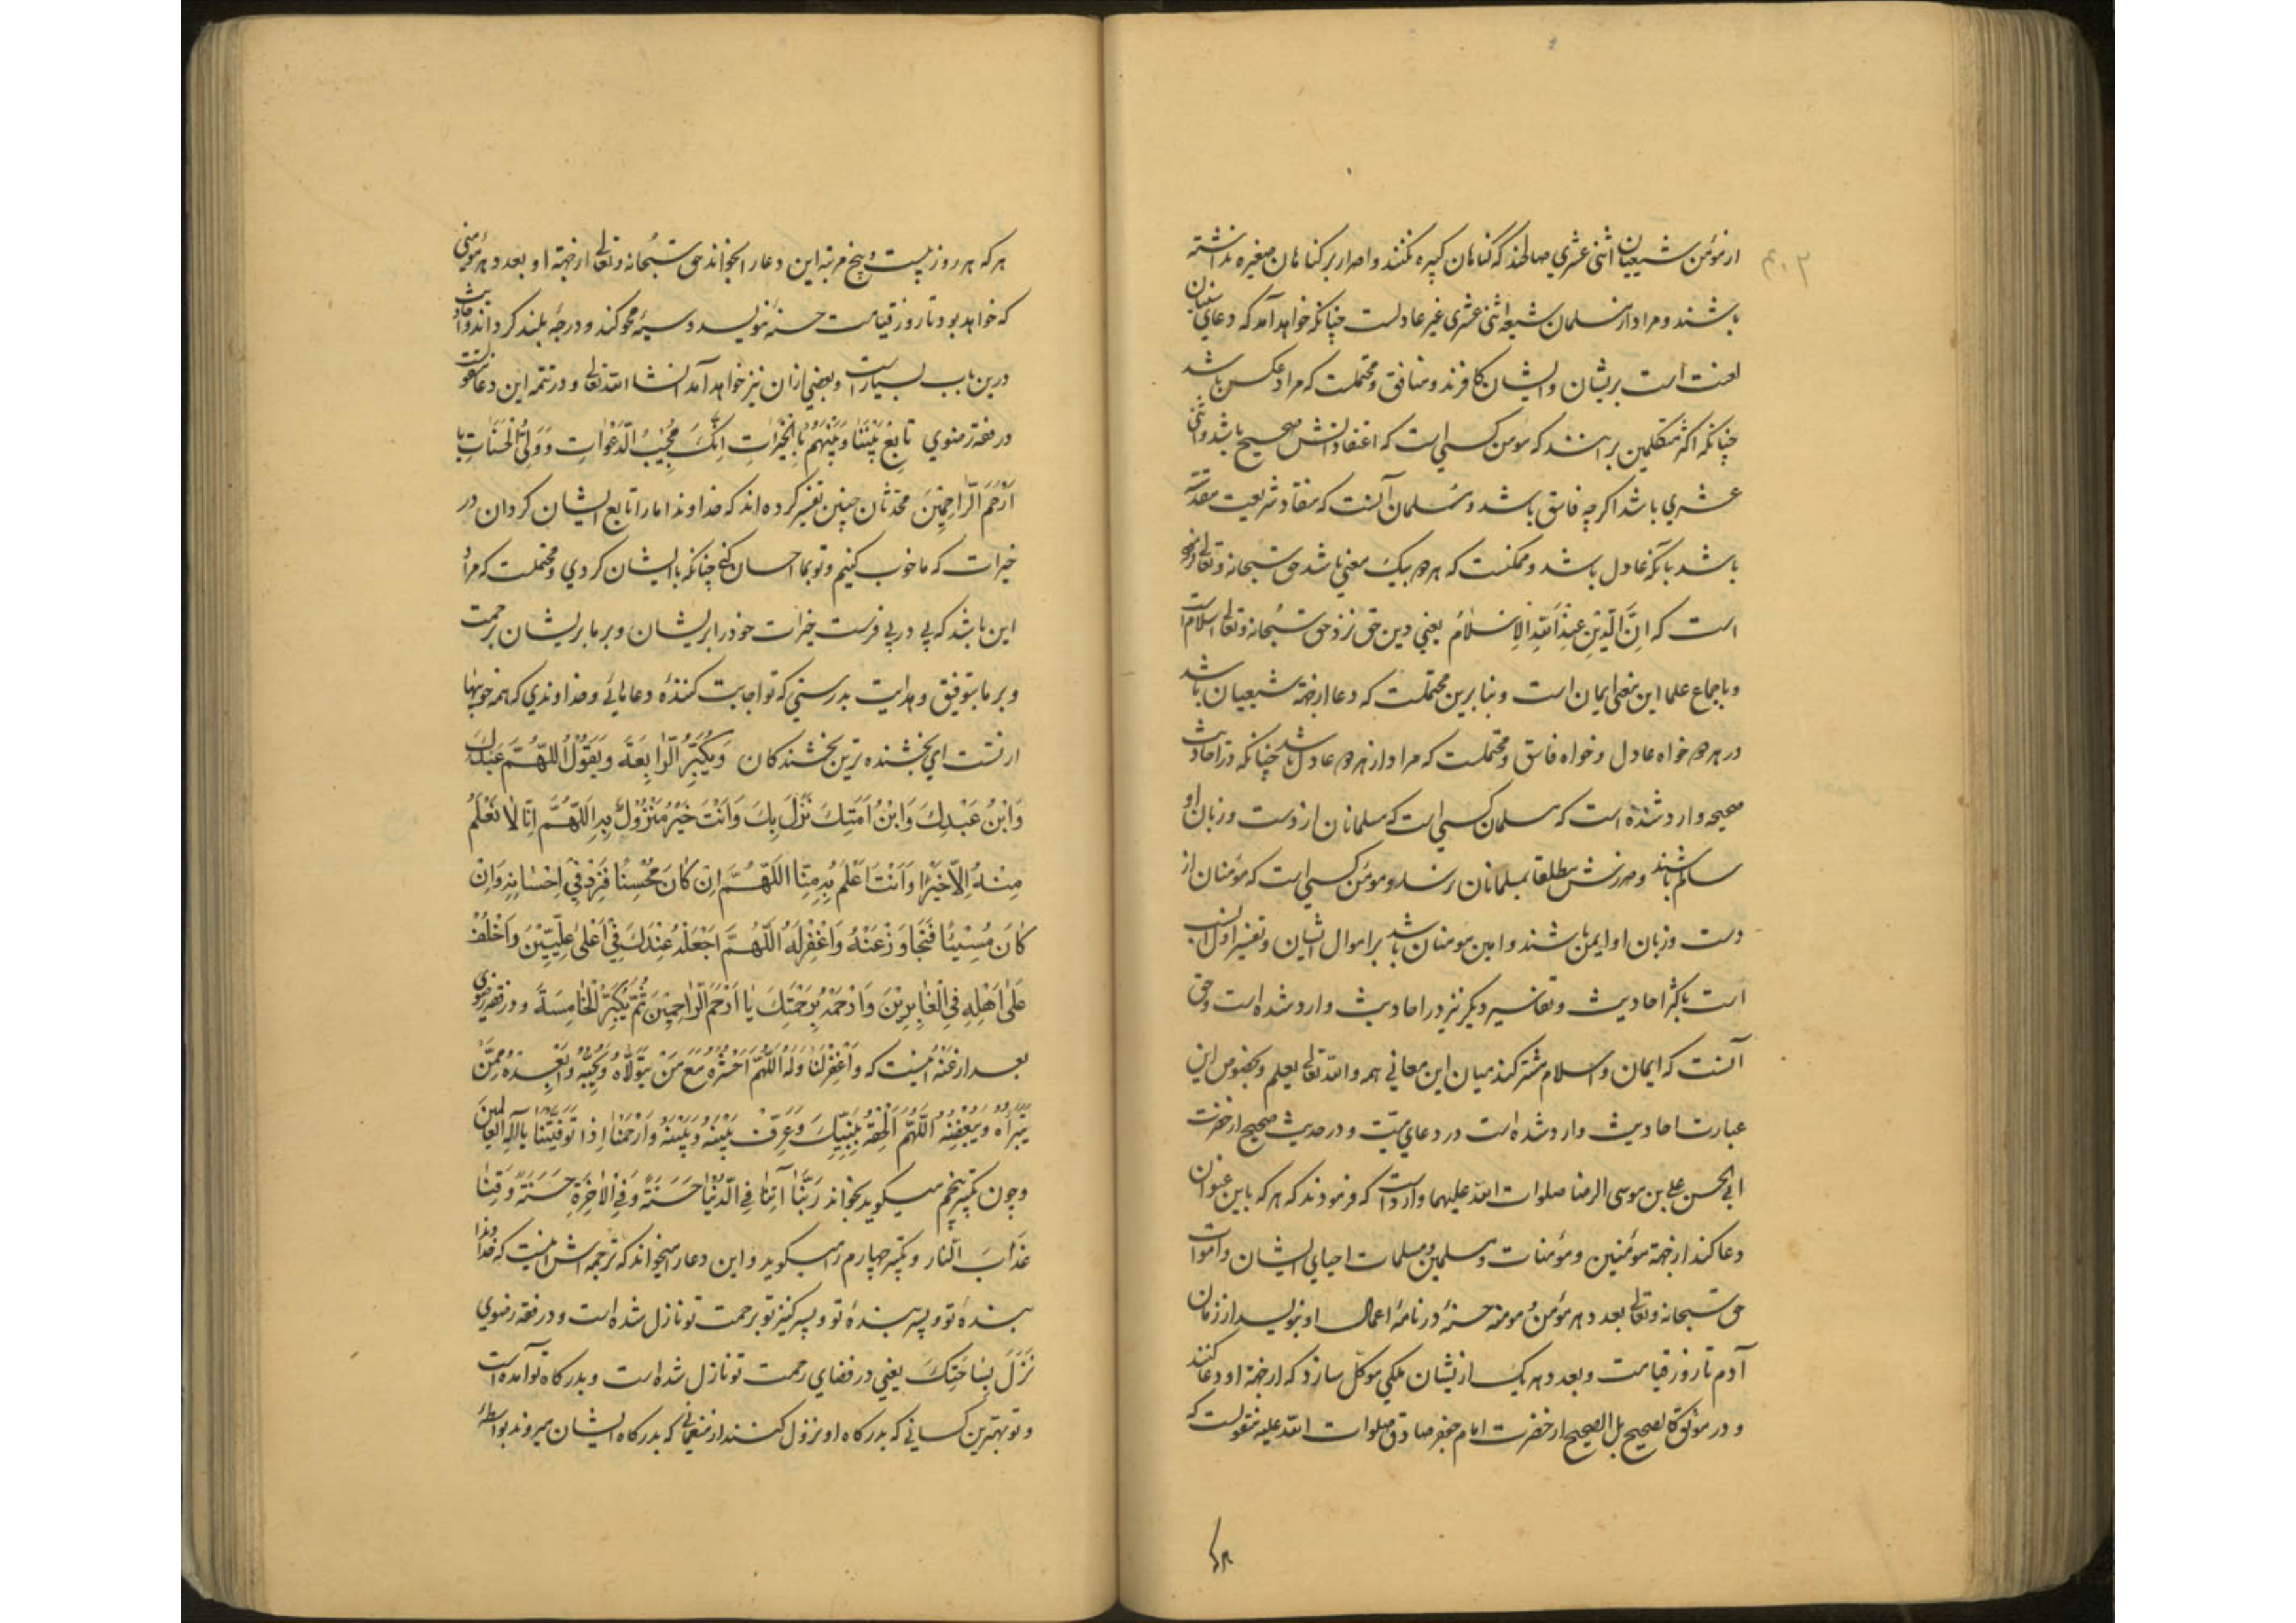 از مؤمن شیعیان اثنی عشری صالحند که گناهان کبیره نکنند و اصرار بر گناهان صغیره نداشته
باشند و مراد از مسلمان شیعه اثنی عشری غیر عادلست چنانکه خواهد آمد که دعای سنیان
لعنت است بریشان و ایشان کافرند و منافق و محتملست که مراد عکس باشد
چنانکه اکثر متکلمین بر انند که مؤمن کسی است که اعتقاداتش صحیح باشد و اثنی
عشری باشد اگرچه فاسق باشد و مسلمان آنست که منقاد شریعت مقدسه
باشد بآنکه عادل باشد و ممکنست که هر دو بیک معنی باشد حق سبحانه و تعالی فرموده
است که اِنَّ الدّینَ عِنْدَ اللهِ الاِسْلامُ یعنی دین حق نزد حق سبحانه و تعالی اسلام است
و باجماع علما این بمعنی ایمان است و بنا برین محتملست که دعا از جهة شیعیان باشد
در هر دو خواه عادل و خواه فاسق و محتملست که مراد از هر دو عادل باشد چنانکه در احادیث
صحیحه وارد شده است که مسلمان کسی است که مسلمانان از دست و زبان او
سالم باشند و ضررش مطلقا بمسلمانان نرسد و مؤمن کسی است که مؤمنان از
دست و زبان او ایمن باشند و امین مومنان باشد بر اموال ایشان و تفسیر اول انسب
است باکثر احادیث و تفاسیر دیگر نیز در احادیث وارد شده است و حق
آنست که ایمان و اسلام مشترکند میان این معانی همه والله تعالی یعلم و بخصوص این
عبارت احادیث وارد شده است در دعای میت و در حدیث صحیح از حضرت
ابی الحسن علی بن موسی الرضا صلوات الله علیهما وارد است که فرمودند که هر که باین عنوان
دعا کند از جهة مؤمنین و مؤمنات و مسلمین و مسلمات احیای ایشان و اموات
حق سبحانه و تعالی بعدد هر مؤمن و مومنه حسنهٔ در نامهٔ اعمال او بنویسد از زمان
آدم تا روز قیامت و بعدد هر یک از ایشان ملکی موکل سازد که از جهة او دعا کنند
و در موثق کالصحیح بل الصحیح از حضرت امام جعفر صادق صلوات الله علیه منقولست که
هر که
هر که هر روز بیست و پنج مرتبه این دعا را بخواند حق سبحانه و تعالی از جهة او بعدد هر مؤمنی
که خواهد بود تا روز قیامت حسنهٔ بنویسد و سیئهٔ محو کند و درجهٔ بلند گرداند و احادیث
درین باب بسیار است و بعضی از ان نیز خواهد آمد انشا الله تعالی و در تتمه این دعا منقولست
در فقه رضوی تابِعْ بَیْنَنا وَبَیْنَهُمْ بِالْخَیْراتِ اِنَّکَ مُجِیْبُ الدَّعَواتِ وَوَلِیُّ الْحَسَناتِ یا
اَرْحَمَ الرّاحِمِیْنَ محدثان چنین تفسیر کرده اند که خداوندا ما را تابع ایشان گردان در
خیرات که ما خوب کنیم و تو بما احسان کنی چنانکه با ایشان کردی و محتملست که مراد
این باشد که پی در پی فرست خیرات خود را بریشان و بر ما بریشان برحمت
و بر ما بتوفیق و هدایت بدرستی که تو اجابت کنندهٔ دعاهائی و خداوندی که همه خوبیها
از تست ای بخشنده ترین بخشندگان وَیُکَبِّرُ الرّابِعَةَ وَیَقُوْلُ اَللّهُمَّ عَبْدُکَ
وَابْنُ عَبْدِکَ وَابْنُ اَمَتِکَ نَزَلَ بِکَ وَاَنْتَ خَیْرُ مَنْزُوْلٍ بِهِ اَللّهُمَّ اِنّا لا نَعْلَمُ
مِنْهُ اِلاّ خَیْرًا وَاَنْتَ اَعْلَمُ بِهِ مِنّا اَللّهُمَّ اِنْ کانَ مُحْسِنًا فَزِدْ فِیْ اِحْسانِهِ وَاِنْ
کانَ مُسِیْئًا فَتَجاوَزْ عَنْهُ وَاغْفِرْ لَهُ اَللّهُمَّ اجْعَلْهُ عِنْدَکَ فِیْ اَعْلیٰ عِلِّیّیْنَ وَاخْلُفْ
عَلیٰ اَهْلِهِ فِی الْغابِرِیْنَ وَارْحَمْهُ بِرَحْمَتِکَ یا اَرْحَمَ الرّاحِمِیْنَ ثُمَّ یُکَبِّرُ الْخامِسَةَ و در فقه رضوی
بعد از عَنْهُ اینست که وَاغْفِرْ لَنا وَلَهُ اَللّهُمَّ احْشُرْهُ مَعَ مَنْ یَتَوَلّاهُ وَیُحِبُّهُ وَاَبْعِدْهُ مِمَّنْ
یَتَبَرَّاُهُ وَیُبْغِضُهُ اَللّهُمَّ اَلْحِقْهُ بِنَبِیِّکَ وَعَرِّفْ بَیْنَهُ وَبَیْنَهُ وَارْحَمْنا اِذا تَوَفَّیْتَنا یا اِلهَ الْعالَمِیْنَ
و چون تکبیر پنجم میگوید بخواند رَبَّنا اٰتِنا فِی الدُّنْیا حَسَنَةً وَفِی الاٰخِرَةِ حَسَنَةً وَقِنا
عَذابَ النّار و تکبیر چهارم را میگوید و این دعا را میخواند که ترجمه اش اینست که خداوندا
بندهٔ تو و پسر بندهٔ تو و پسر کنیز تو برحمت تو نازل شده است و در فقه رضوی
نَزَلَ بِساحَتِکَ یعنی در فضای رحمت تو نازل شده است و بدرگاه تو آمده است
و تو بهترین کسانی که بدرگاه او نزول کنند از منعمانی که بدرگاه ایشان میروند بواسطهٔ